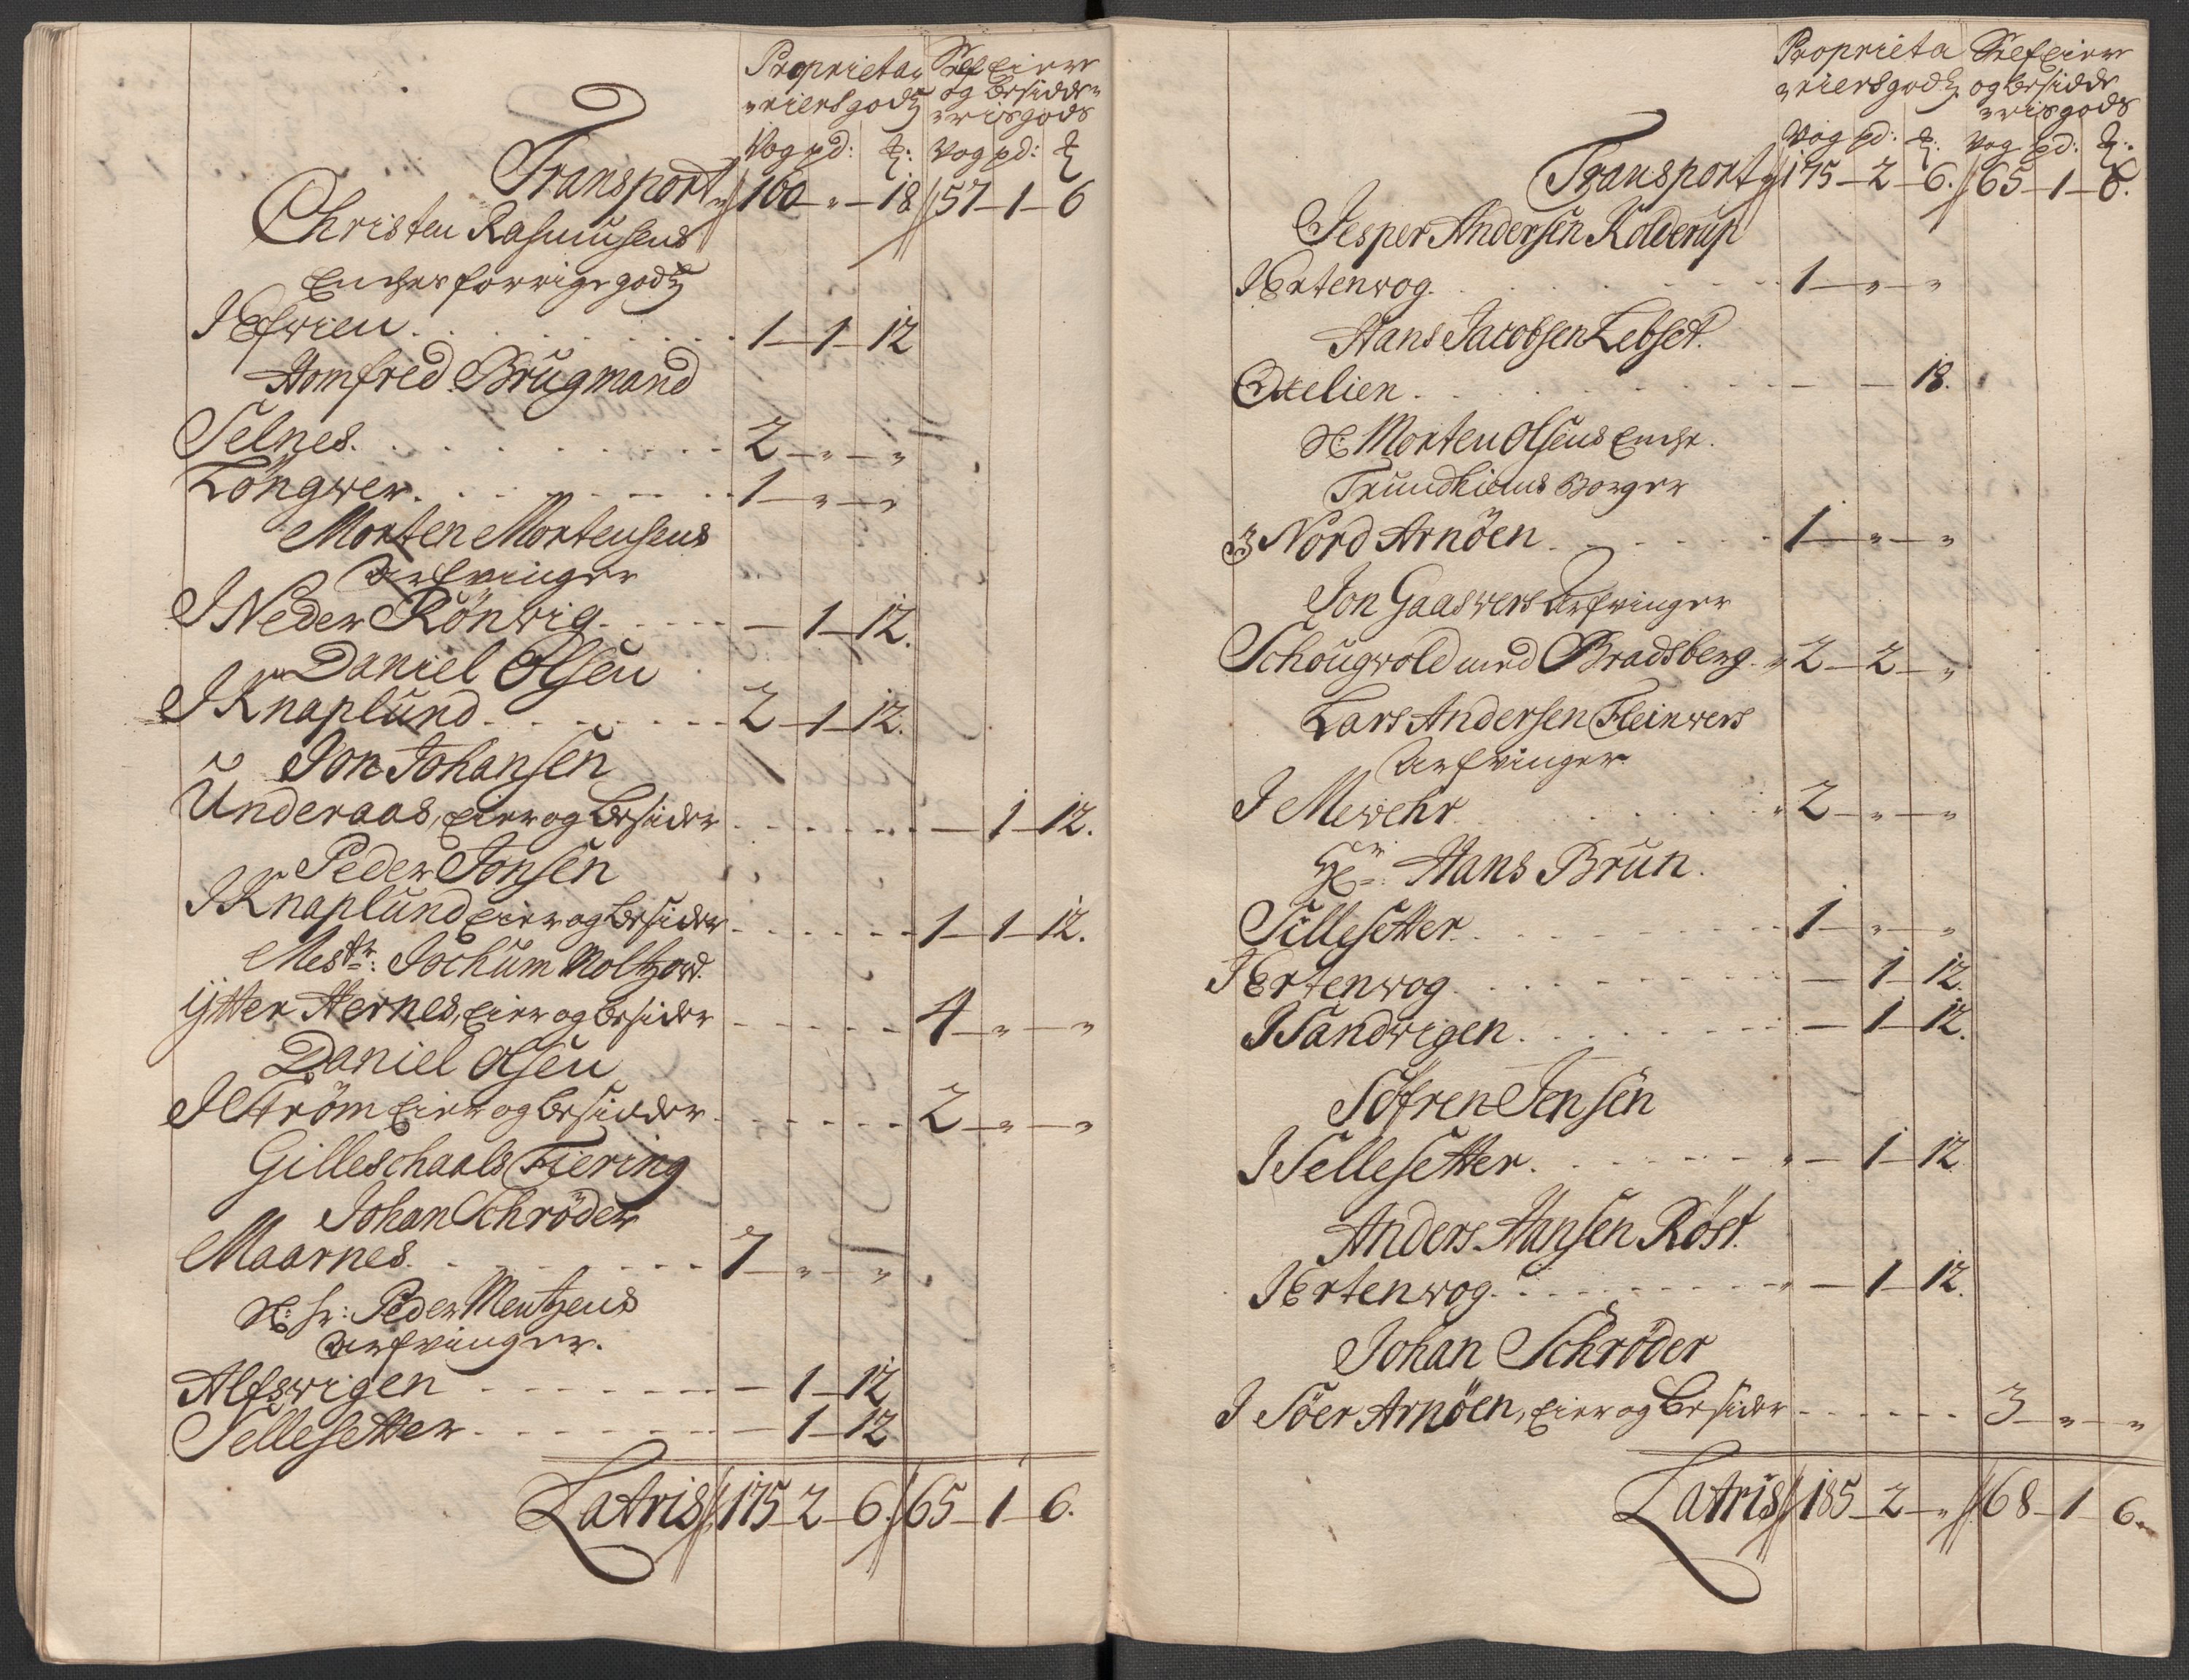 Proprieta Self Eier
riersgodtz og besidde
risgods
Vog pd: ℔: Vog pd: ℔
Transport 160 — „ — 18 57 — 1 — 6
Christen Rasmusens
Enches forrige godtz
I Efwien . . . 1 — 1 — 12
Homfred Brugmand
Selnes . . . 2 — „ — „
Löngwer . . . 1 — „ — „
Morten Mortensens
Arfvinger
I Neder Rönwig . . . — 1 — 12.
Daniel Olsen
I Knaplund . . . 2 — 1 — 12.
Jon Johansen
Underaas, Eier og besider . . . — 1 — 12.
Peder Jonsen
I Knaplund Eier og besider . . . 1 — 1 — 12.
Mestr: Jochum Moltzow
Ytter Hernes, Eier og besider . . . 4 — „ — „
Daniel Olsen
I Ström Eier og besidder . . . 2 — „ — „
Gilleschaals Fiering
Johan Schröder
Maarnes . . . 7 — „ — „
Sl: hr: Peder Mentzens
Arfvinger.
Alfswigen . . . — 1 — 12
Sellesetter . . . — 1 — 12
Latris 175 — 2 — 6. 65 — 1 — 6.
Proprieta Self Eier
riersgodtz og besidde
risgods
Vog pd: ℔: Vog pd: ℔:
Transport 175 — 2 — 6. 65 — 1 — 6.
Jesper Andersen Kolderup
I Ertenwog . . . 1 — „ — „
Hans Jacobsen Lebset.
Oxelien . . . — — 18.
Sl: Morten Olsens Enche.
Trundhiems Borger
I Nord Arnöen . . . 1 — „ — „
Jon Gaasvers Arfvinger
Schougwold med Bradsberg . „ 2 — 2 — „
Lars Andersen Fleinwers
Arfvinger
I Mewehr . . . 2 — „ — „
Hr: Hans Brun.
Sillesetter . . . 1 — „ — „
I Ertenwog . . . — 1 — 12.
I Sandwigen . . . — 1 — 12.
Söfren Jensen
I Sellesetter . . . „ — 1 — 12
Anders Hansen Röst.
I Ertenwog . . . — 1 — 12.
Johan Schröder
I Söer Arnöen, Eier og besider . . . 3 — „ — „
Latris 185 — 2 — „ 68 — 1 — 6.